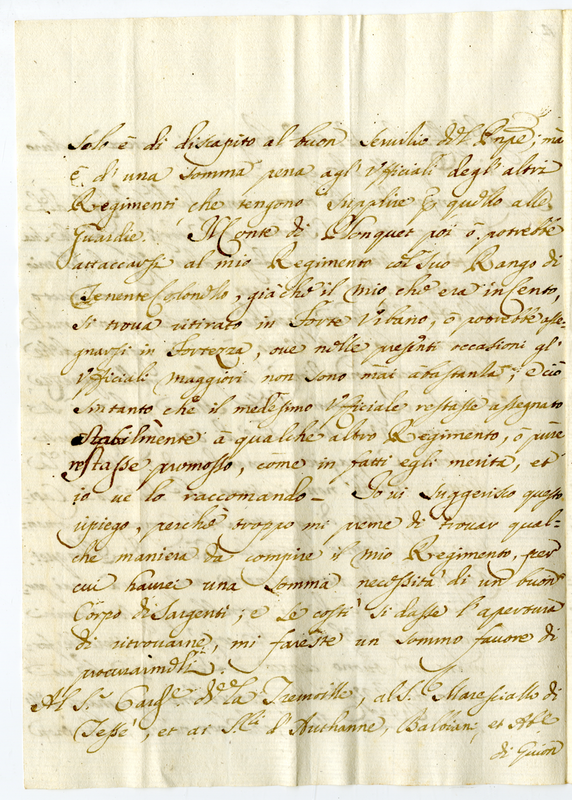 solo è di discapito al buon servitio del Pnpe; mà
è d'una somma pena agl'Ufficiali degl'altri
Regimenti che tengono supplire p quello alle
Guardie. Monte di Plonquet poi ò potrebbe
attaccarsi al mio Regimento col suo Rango di
Tenente Colonello, già che il mio che era in Cento,
si trova ritirato in Forte Urbano, ò potrebbe asse-
gnarsi in Fortezza, ove nelle presenti occasioni gl'
Ufficiali maggiori non sono mài abastanza; e ciò
intanto che il medesimo Ufficiale restasse assegnato
stabilmente à qualche altro Regimento, ò pure
restasse promosso, come in fatti egli merita, et
io ve lo raccomando - Io vi suggerisco questo
ripiego, perche troppo mi preme di trovar qual-
che maniera da compire il mio Regimento, per
cui haurei una somma necessità di un buon
Corpo di Sargenti; e se costì si dasse l'apertura
di ritrovarne, mi fareste un sommo favore di
procurarmeli.
Al Sr. Cardle de la Tremoille, al Sr. Maresciallo di
Tessé, et ai Sri d'Authanne, Balbiani, et Abe
di Guion